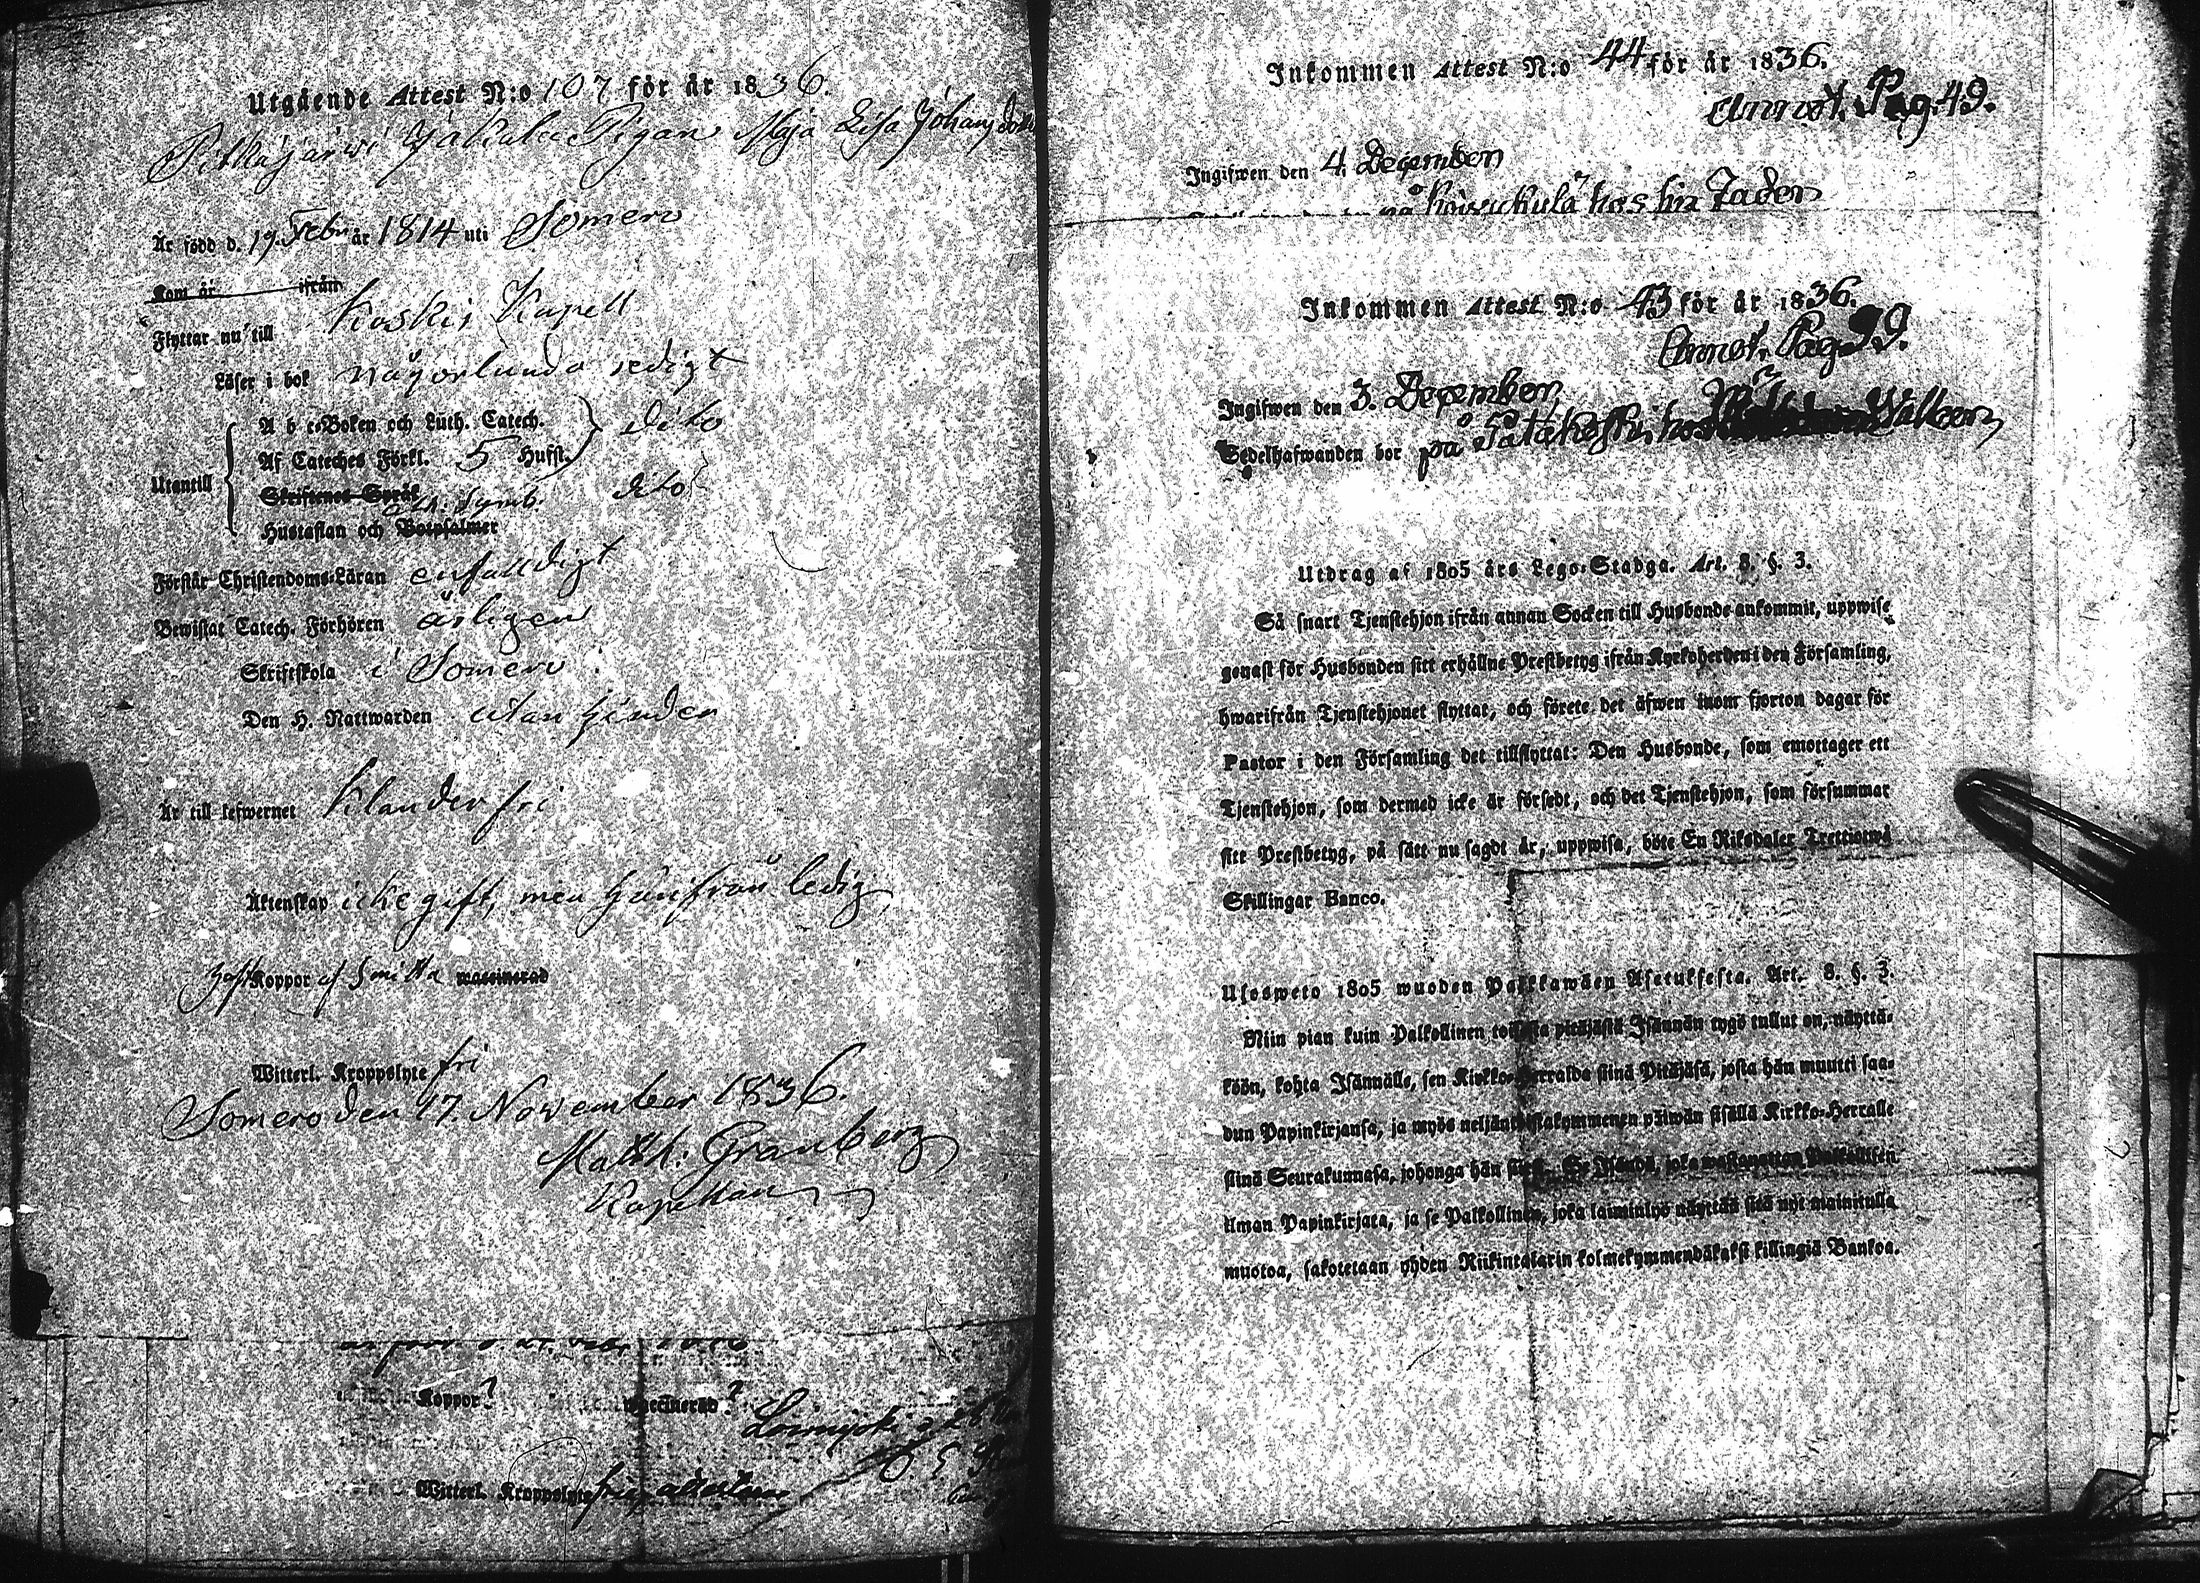 Utgående Attest N:o 107 för år 1836.
Pitkäjärwi Jakula Pigan Maja Lisa Johansdotter
Är född d. 19. Febr. år 1814 uti Somero
Kom år ifrån
Flyttar nu till Koskis Kapell
Läser i bok någorlunda redigt
A b c-Boken och Luth. Catech. dito
Af Cateches Förkl. 5 Hufst.
Utantill
Skriftenes Språk Ath. Symb. dito
Hustaflan och Botpsalmer
Förstår Christendoms-Läran enfalldigt
Bewistat Catech. Förhören årligen
Skriftskola i Somero
Den H. Nattwarden utan hinder
Är till lefwernet klanderfri
Äktenskap icke gift, men härifrån ledig
haft Koppor af Smitta waccinerad
Witterl. Kroppslyte fri
Somero den 17. November 1836.
Matth: Granberg
Kapellan
Koppor? waccinerad?
Witterl. Kroppslyte fri,
Inkommen Attest N:o 44 för år 1836.
Annot. Pag. 49.
Ingifwen den 4. December
på hos
Inkommen Attest N:o 43 för år 1836.
Annot. Pag. 99.
Ingifwen den 3. December
Sedelhafwanden bor på Patakoski hos
Utdrag af 1805 års Lego-Stadga. Art. 8. §. 3.
Så snart Tjenstehjon ifrån annan Socken till Husbonde ankommit, uppwise
genast för Husbonden sitt erhållne Prestbetyg ifrån Kyrkoherden i den Församling,
hwarifrån Tjenstehjonet flyttat, och förete det äfwen inom fjorton dagar för
Pastor i den Församling det tillflyttat: Den Husbonde, som emottager ett
Tjenstehjon, som dermed icke är försedt, och det Tjenstehjon, som försummar
sitt Prestbetyg, på sätt nu sagdt är, uppwisa, böte En Riksdaler Trettiotwå
Skillingar Banco.
Ulosweto 1805 wuoden Palkkawäen Asetuksesta. Art. 8. §. 3.
Niin pian kuin Palkollinen toisesta pitäjästä Isännän tygö tullut on, näyttä-
köön, kohta Isännälle, sen Kirkko-Herralda siinä Pitäjäsä, josta hän muutti saa-
dun Papinkirjansa, ja myös neljäntoistakymmenen päiwän sisällä Kirkko-Herralle
siinä Seurakunnasa, johonga hän siirsi. Se Isändä, joka wastanottaa Palkollisen
ilman Papinkirjata, ja se Palkollinen, joka laiminlyö näyttää sitä nyt mainitulla
muotoa, sakotetaan yhden Riikintalarin kolmekymmendäkaksi killingiä Bankoa.